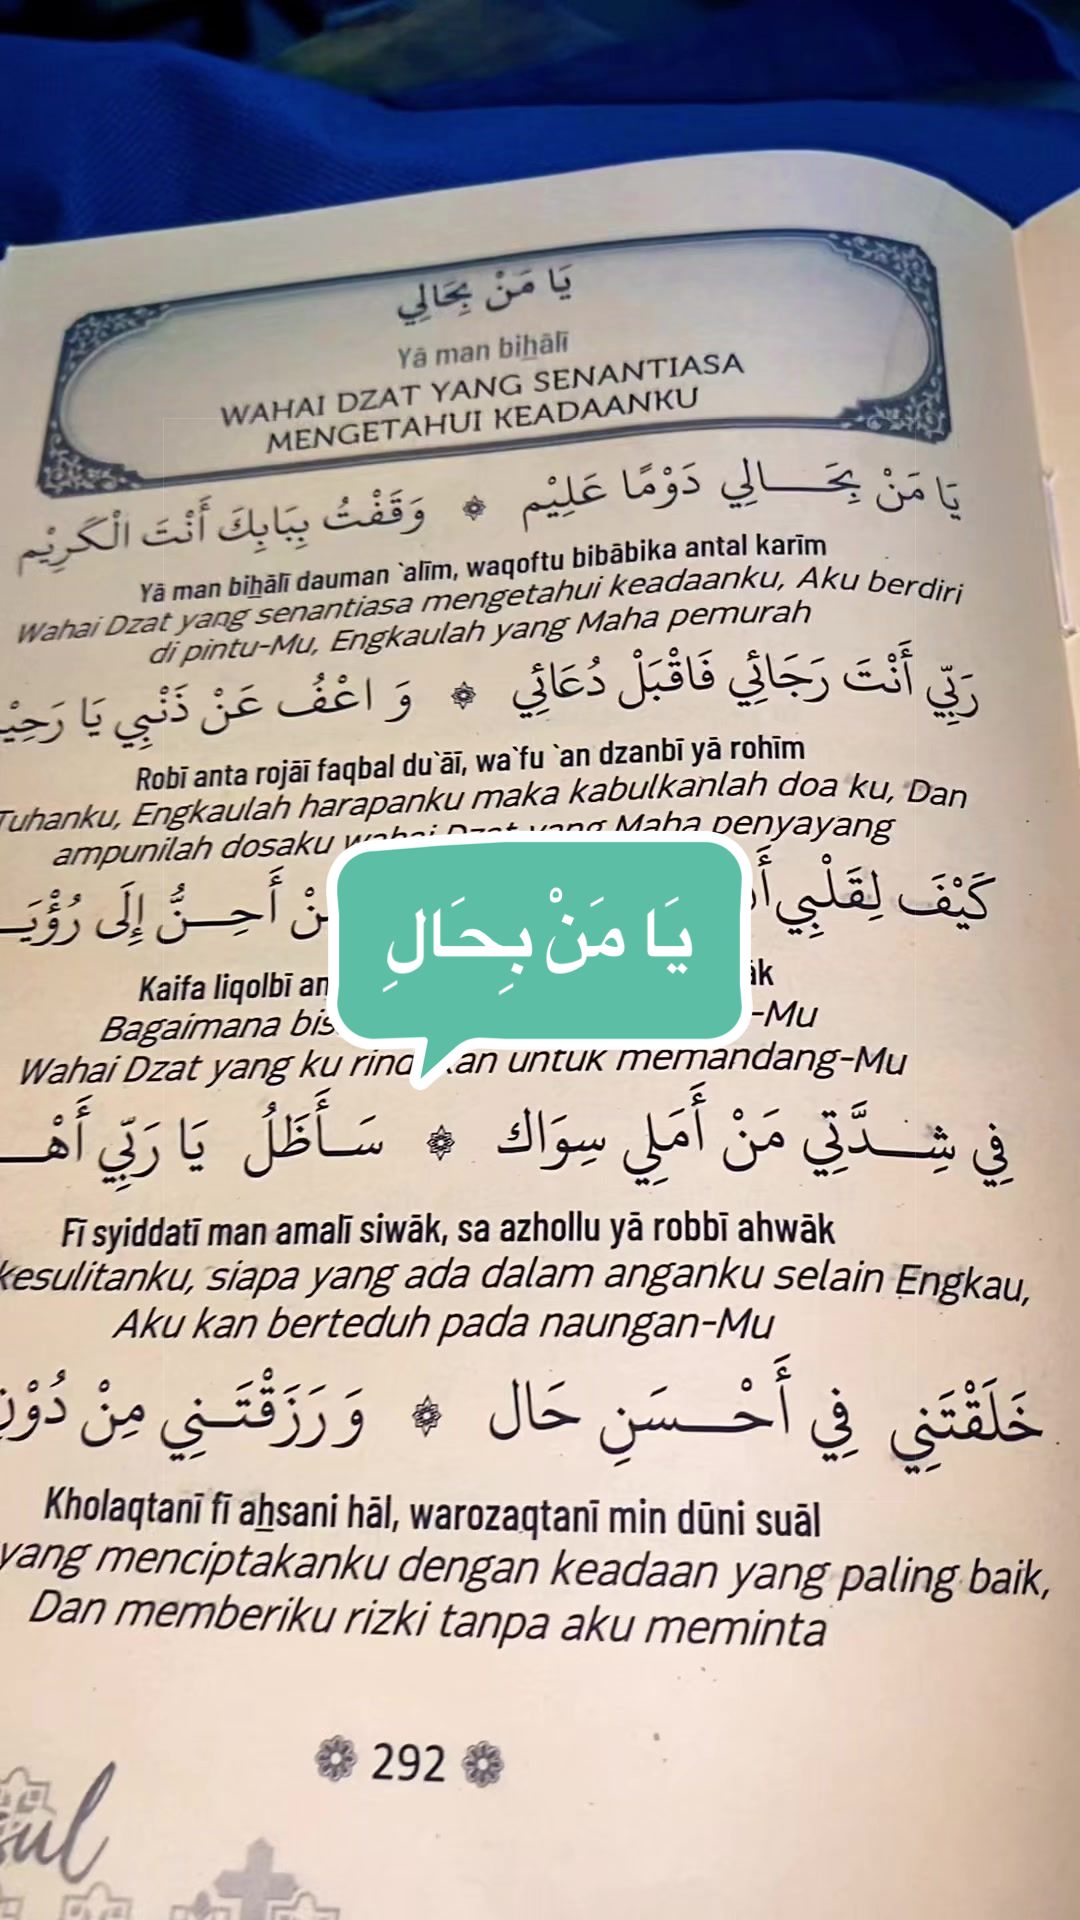 يَا مَنْ بِحَالِي
Yā man biẖālī
WAHAI DZAT YANG SENANTIASA
MENGETAHUI KEADAANKU
يَا مَنْ بِحَـــالِي دَوْمًا عَلِيْم ۞ وَقَفْتُ بِبَابِكَ أَنْتَ الْكَرِيْم
Yā man biẖālī dauman `alīm, waqoftu bibābika antal karīm
Wahai Dzat yang senantiasa mengetahui keadaanku, Aku berdiri
di pintu-Mu, Engkaulah yang Maha pemurah
رَبِّي أَنْتَ رَجَائِي فَاقْبَلْ دُعَائِي ۞ وَ اعْفُ عَنْ ذَنْبِي يَا
Robī anta rojāī faqbal du`āī, wa`fu `an dzanbī yā rohīm
Tuhanku, Engkaulah harapanku maka kabulkanlah doa ku, Dan
ampunilah dosaku wahai Dzat yang Maha penyayang
كَيْفَ لِقَلْبِي أَحِـــنُّ إِلَى
يَا مَنْ بِحَالِ
Kaifa liqolbī
Bagaimana -Mu
Wahai Dzat yang ku untuk memandang-Mu
فِي شِـــدَّتِي مَنْ أَمَلِي سِوَاك ۞ سَــأَظَلُ يَا رَبِّي
Fī syiddatī man amalī siwāk, sa azhollu yā robbī ahwāk
kesulitanku, siapa yang ada dalam anganku selain Engkau,
Aku kan berteduh pada naungan-Mu
خَلَقْتَنِي فِي أَحْـــسَنِ حَال ۞ وَ رَزَقْتَـــنِي مِنْ
Kholaqtanī fī aẖsani hāl, warozaqtanī min dūni suāl
yang menciptakanku dengan keadaan yang paling baik,
Dan memberiku rizki tanpa aku meminta
292